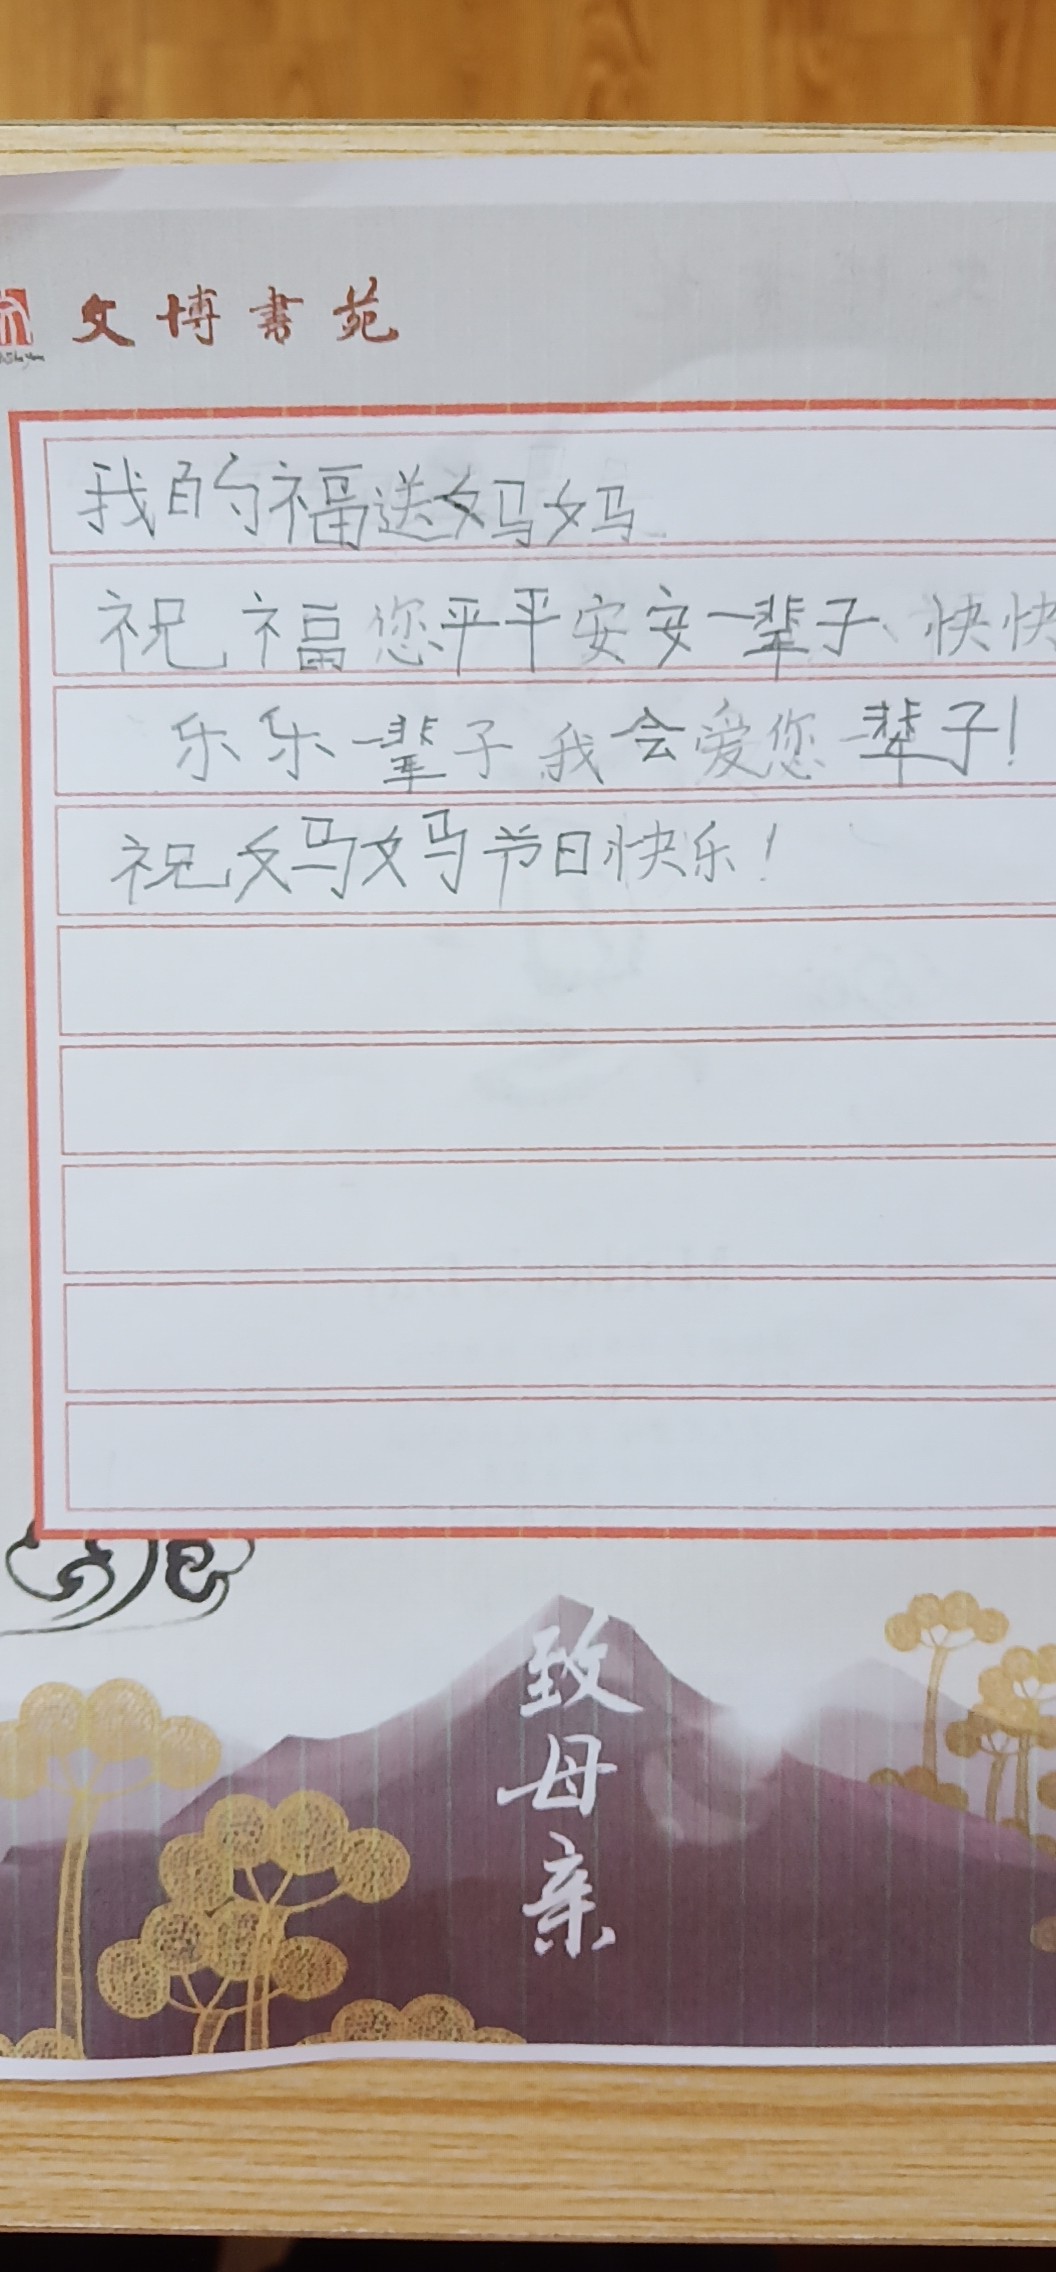 文博書苑
我的福送妈妈
祝福您平平安安一辈子、快快
乐乐一辈子我会爱您一辈子!
祝妈妈节日快乐!
致母亲